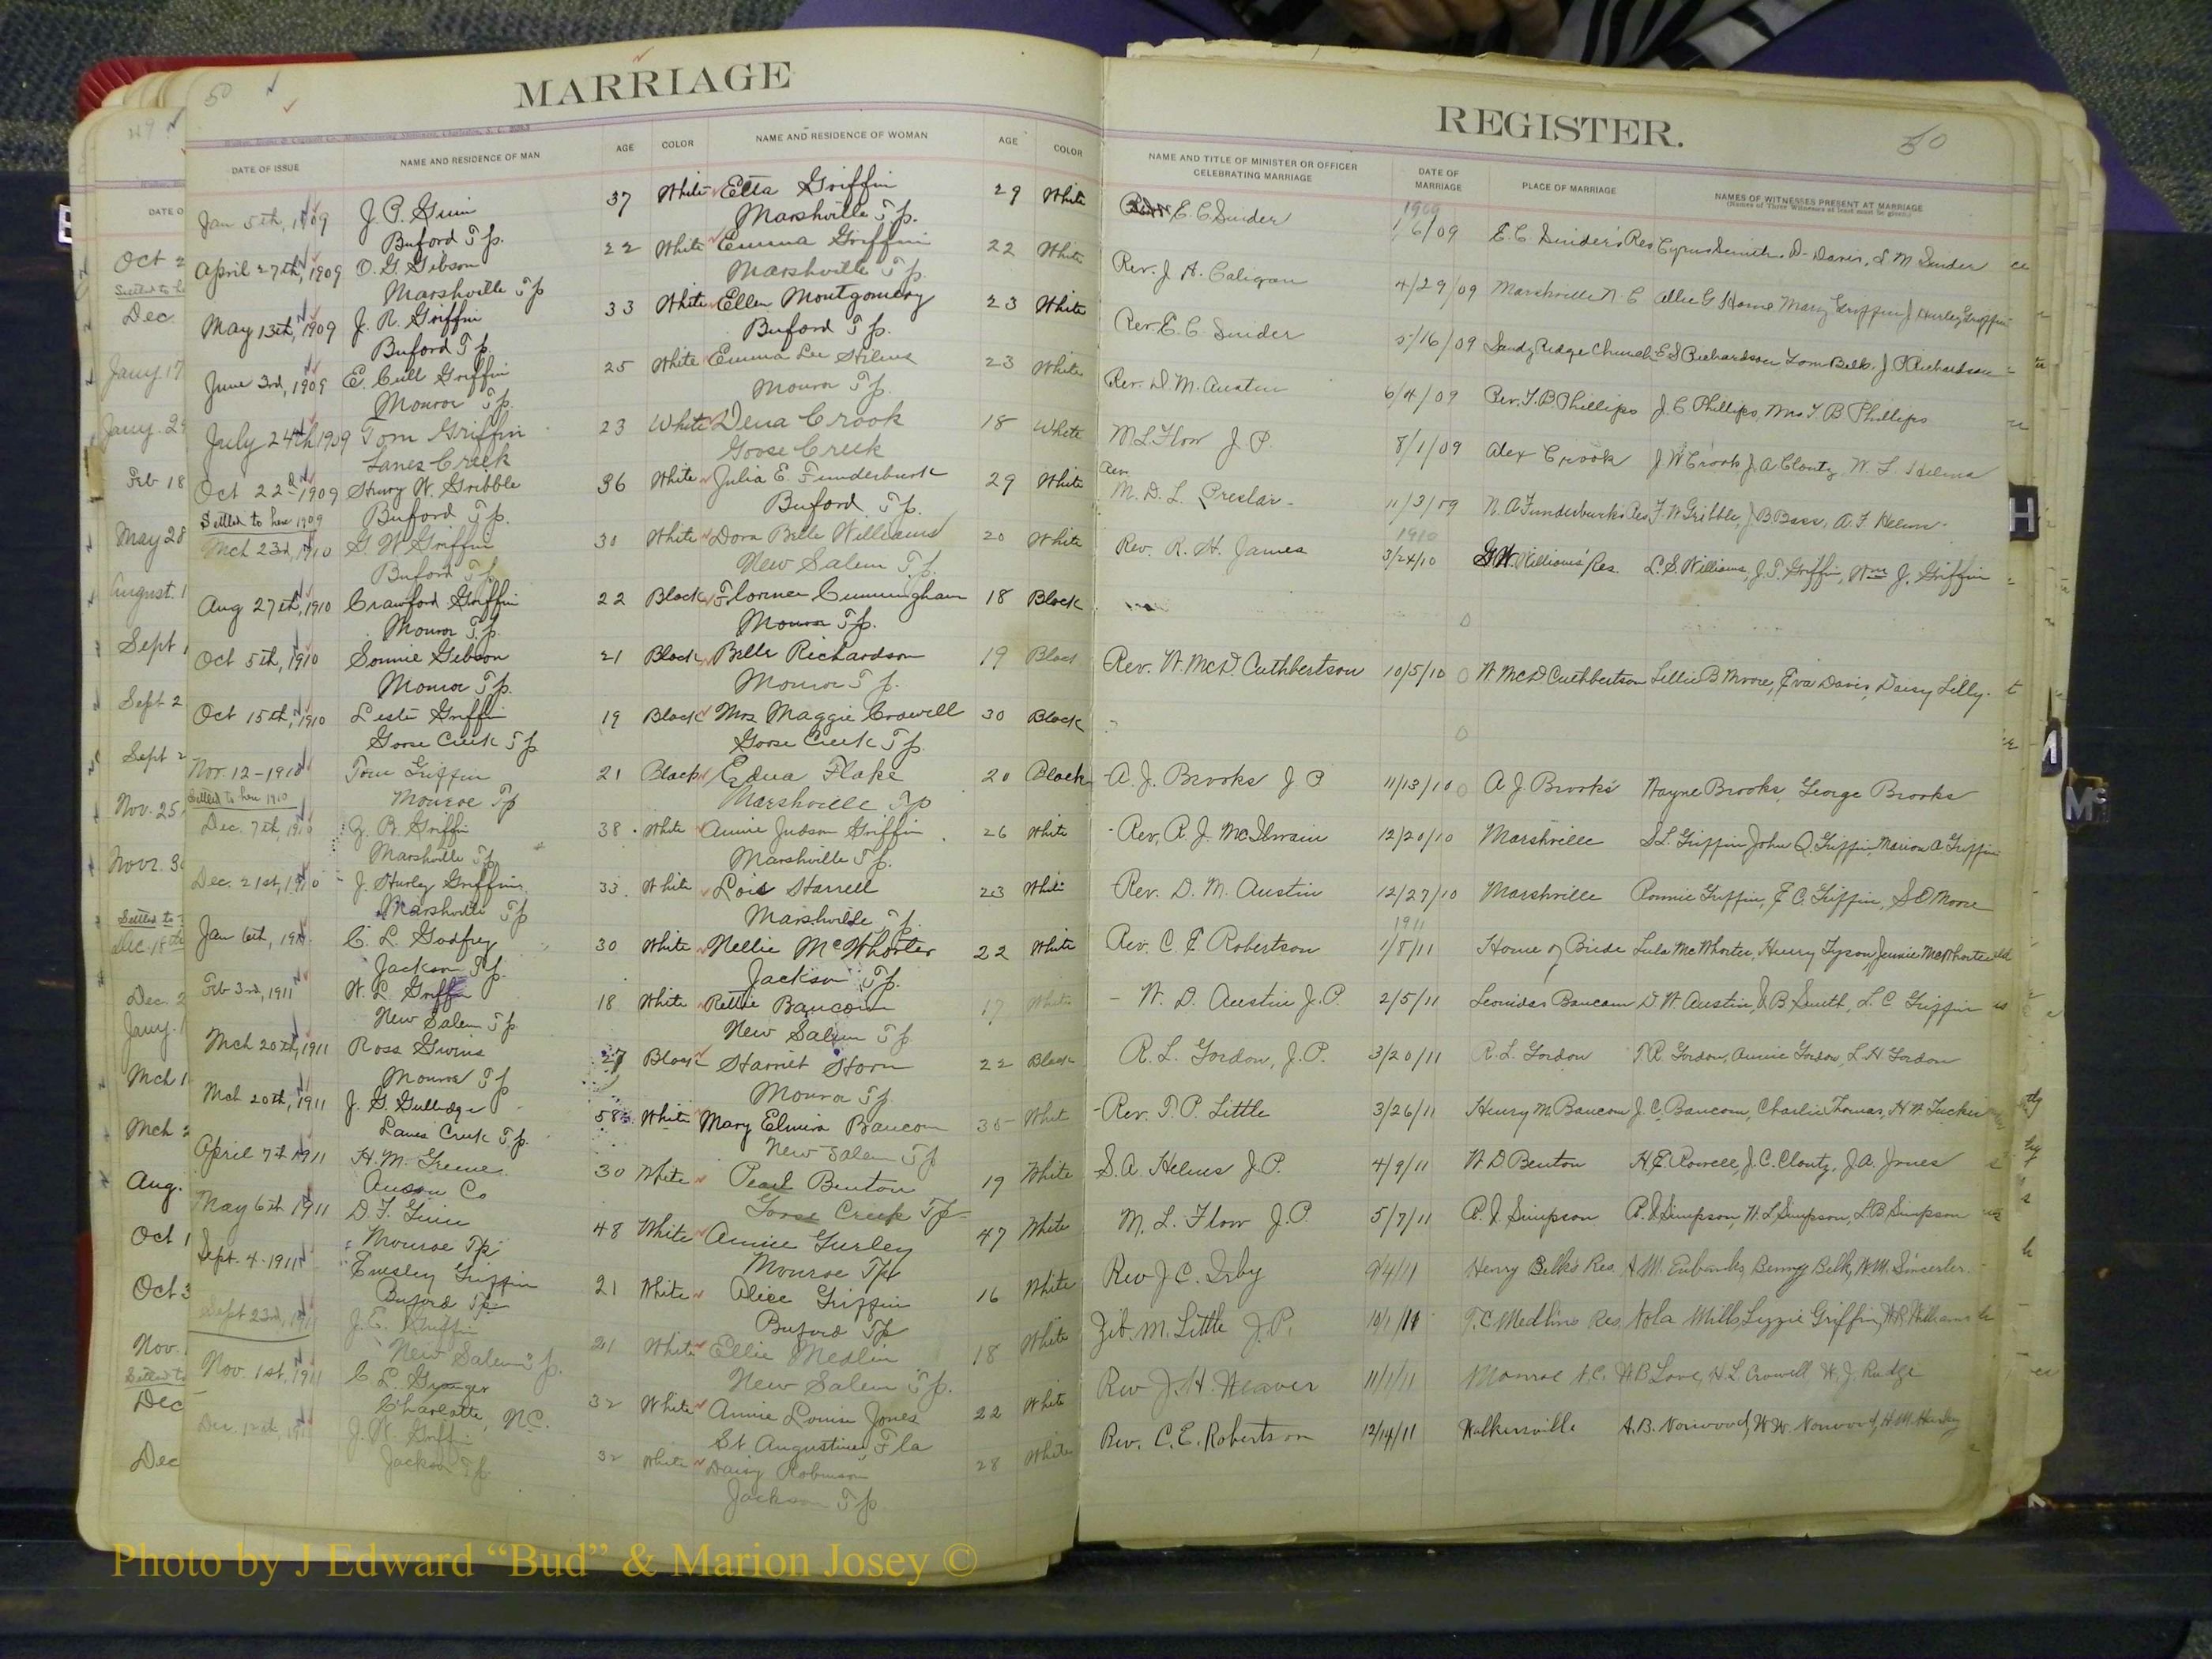 50
MARRIAGE
DATE OF ISSUE NAME AND RESIDENCE OF MAN AGE COLOR NAME AND RESIDENCE OF WOMAN AGE COLOR
Jan 5th, 1909 J. P. 37 White Etta Griffin 29 White
Buford Tp. Marshville Tp.
April 27th, 1909 O. G. Gibson 22 White Emma Griffin 22 White
Marshville Tp Marshville Tp.
May 13th, 1909 J. R. Griffin 33 White Ellen Montgomery 23 White
Buford Tp. Buford Tp.
June 3rd, 1909 E. Cull Griffin 25 White Emma Lee 23 White
Monroe Tp. Monroe Tp.
July 24th 1909 Tom Griffin 23 White Dena Crook 18 White
Lanes Creek Goose Creek
Oct 22d 1909 Henry W. Gribble 36 White Julia E. Funderburk 29 White
Settled to here 1909 Buford Tp. Buford Tp.
Mch 23d, 1910 G. W. Griffin 30 White Dora Belle Williams 20 White
Buford Tp New Salem Tp.
Aug 27th, 1910 Crawford Griffin 22 Black Florence Cunningham 18 Black
Monroe Tp. Monroe Tp.
Oct 5th, 1910 Sonnie Gibson 21 Black Belle Richardson 19 Black
Monroe Tp. Monroe Tp.
Oct 15th, 1910 Lester Griffin 19 Black Mrs Maggie Crowell 30 Black
Goose Creek Tp Goose Creek Tp.
Nov. 12-1910 Tom Griffin 21 Black Edna Flake 20 Black
Settled to here 1910 Monroe Tp Marshville Tp
Dec. 7th, 1910 Griffin 38 White Annie Judson Griffin 26 White
Marshville Tp Marshville Tp.
Dec. 21st, 1910 J. Hurley Griffin 33 White Lois Harrell 23 White
Marshville Tp Marshville Tp.
Jan 6th, 1911 C. L. Godfrey 30 White Nellie McWhorter 22 White
Jackson Tp. Jackson Tp.
Feb 3rd, 1911 W. L. Griffin 18 White Baucom 17 White
New Salem Tp. New Salem Tp
Mch 20th, 1911 Ross 27 Black Harriet 22 Black
Monroe Tp Monroe Tp
Mch 20th, 1911 J. G. Gulledge 58 White Mary Elmira Baucom 35 White
Lanes Creek Tp. New Salem Tp
April 7th 1911 H. M. Greene 30 White Pearl Benton 19 White
Anson Co Goose Creek Tp
May 6th 1911 D. F. 48 White Annie Gurley 47 White
Monroe Tp Monroe Tp
Sept. 4-1911 Griffin 21 White Alice Griffin 16 White
Buford Tp Buford Tp
Sept 23rd, 1911 J. E. Griffin 21 White Ellie Medlin 18 White
New Salem Tp. New Salem Tp.
Nov. 1st, 1911 C. L. Granger 32 White Annie Louise Jones 22 White
Charlotte, N.C. St Augustine, Fla
Dec. 12th, 1911 J. W. Griffin 32 White Daisy Robinson 28 White
Jackson Tp. Jackson Tp.
REGISTER.
50
NAME AND TITLE OF MINISTER OR OFFICER CELEBRATING MARRIAGE DATE OF MARRIAGE PLACE OF MARRIAGE NAMES OF WITNESSES PRESENT AT MARRIAGE
(Names of Three Witnesses at least must be given.)
1909
E. C. Snider 1/6/09 E. C. Snider's Res Davis, S M Snider
Rev. J. A. 4/29/09 Marshville N C Allie G Horne Mary Griffin J Hurley Griffin
Rev. E. C. Snider 5/16/09 Sandy Ridge Church E S Richardson Tom Belk, J P Richardson
Rev. D. M. Austin 6/4/09 Rev. T. B. Phillips J. C. Phillips, Mrs T. B Phillips
M L Flow J. P. 8/1/09 Alex Crook J W Crook J. A Clontz, W. L. Helms
Rev M. D. L. Preslar 11/3/09 N. A Funderburks Res F. W Gribble, J B Bass, A. F. Helms
1910
Rev. R. H. James 3/24/10 G. W. Williams' Res. L. S. Williams, J. T. Griffin, Wm J. Griffin
Rev. W. McD. Cuthbertson 10/5/10 W. McD Cuthbertson Lillie B Moore, Eva Davis, Daisy Lilly.
A. J. Brooks J P 11/13/10 A J Brooks' Wayne Brooks, George Brooks
Rev. R. J. McIlwain 12/20/10 Marshville S L Griffin John Q. Griffin Marion A Griffin
Rev. D. M. Austin 12/27/10 Marshville Griffin, E C. Griffin, S O Moore
1911
Rev. C. E Robertson 1/8/11 Home of Bride Lula McWhorter, Henry Tyson Jennie McWhorter
W. D. Austin J. P. 2/5/11 Leonidas Baucom D. W Austin, B Smith, L. C Griffin
R. L. Gordon, J. P. 3/20/11 R. L. Gordon Gordon, Annie Gordon, L. H Gordon
Rev. T. P. Little 3/26/11 Henry M. Baucom J. C. Baucom, Charlie Thomas, H W. Tucker
S. A. Helms J. P. 4/9/11 W D Benton H. E. Rowell, J. C. Clontz, J. A. Jones
M. L. Flow J. P. 5/7/11 Simpson Simpson, W. L Simpson, L. B. Simpson
Rev J. C. Irby 9/4/11 Henry Belk's Res. Benny Belk, W. M.
Zib. M. Little J. P. 10/1/11 T. C Medlin's Res. Nola Mills, Lizzie Griffin, Williams
Rev J. H. Weaver 11/1/11 Monroe N. C. W B Love, H. L. Crowell, W. J. Rudge
Rev. C. E. Robertson 12/14/11 Walkersville A. B. Norwood, W. W. Norwood, H. M.
49
DATE O
Oct 2
Dec.
Jany. 17
Jany. 29
Feb 18
May 28
August. 1
Sept 1
Sept 2
Sept 2
Nov. 25
Novr. 30
Settled to
Dec. 18th
Dec. 2
Jany. 1
Mch 1
Mch 2
Aug.
Oct 1
Oct 3
Nov.
Settled to
Dec
Dec
H
M
Mc
Photo by J Edward “Bud” & Marion Josey ©